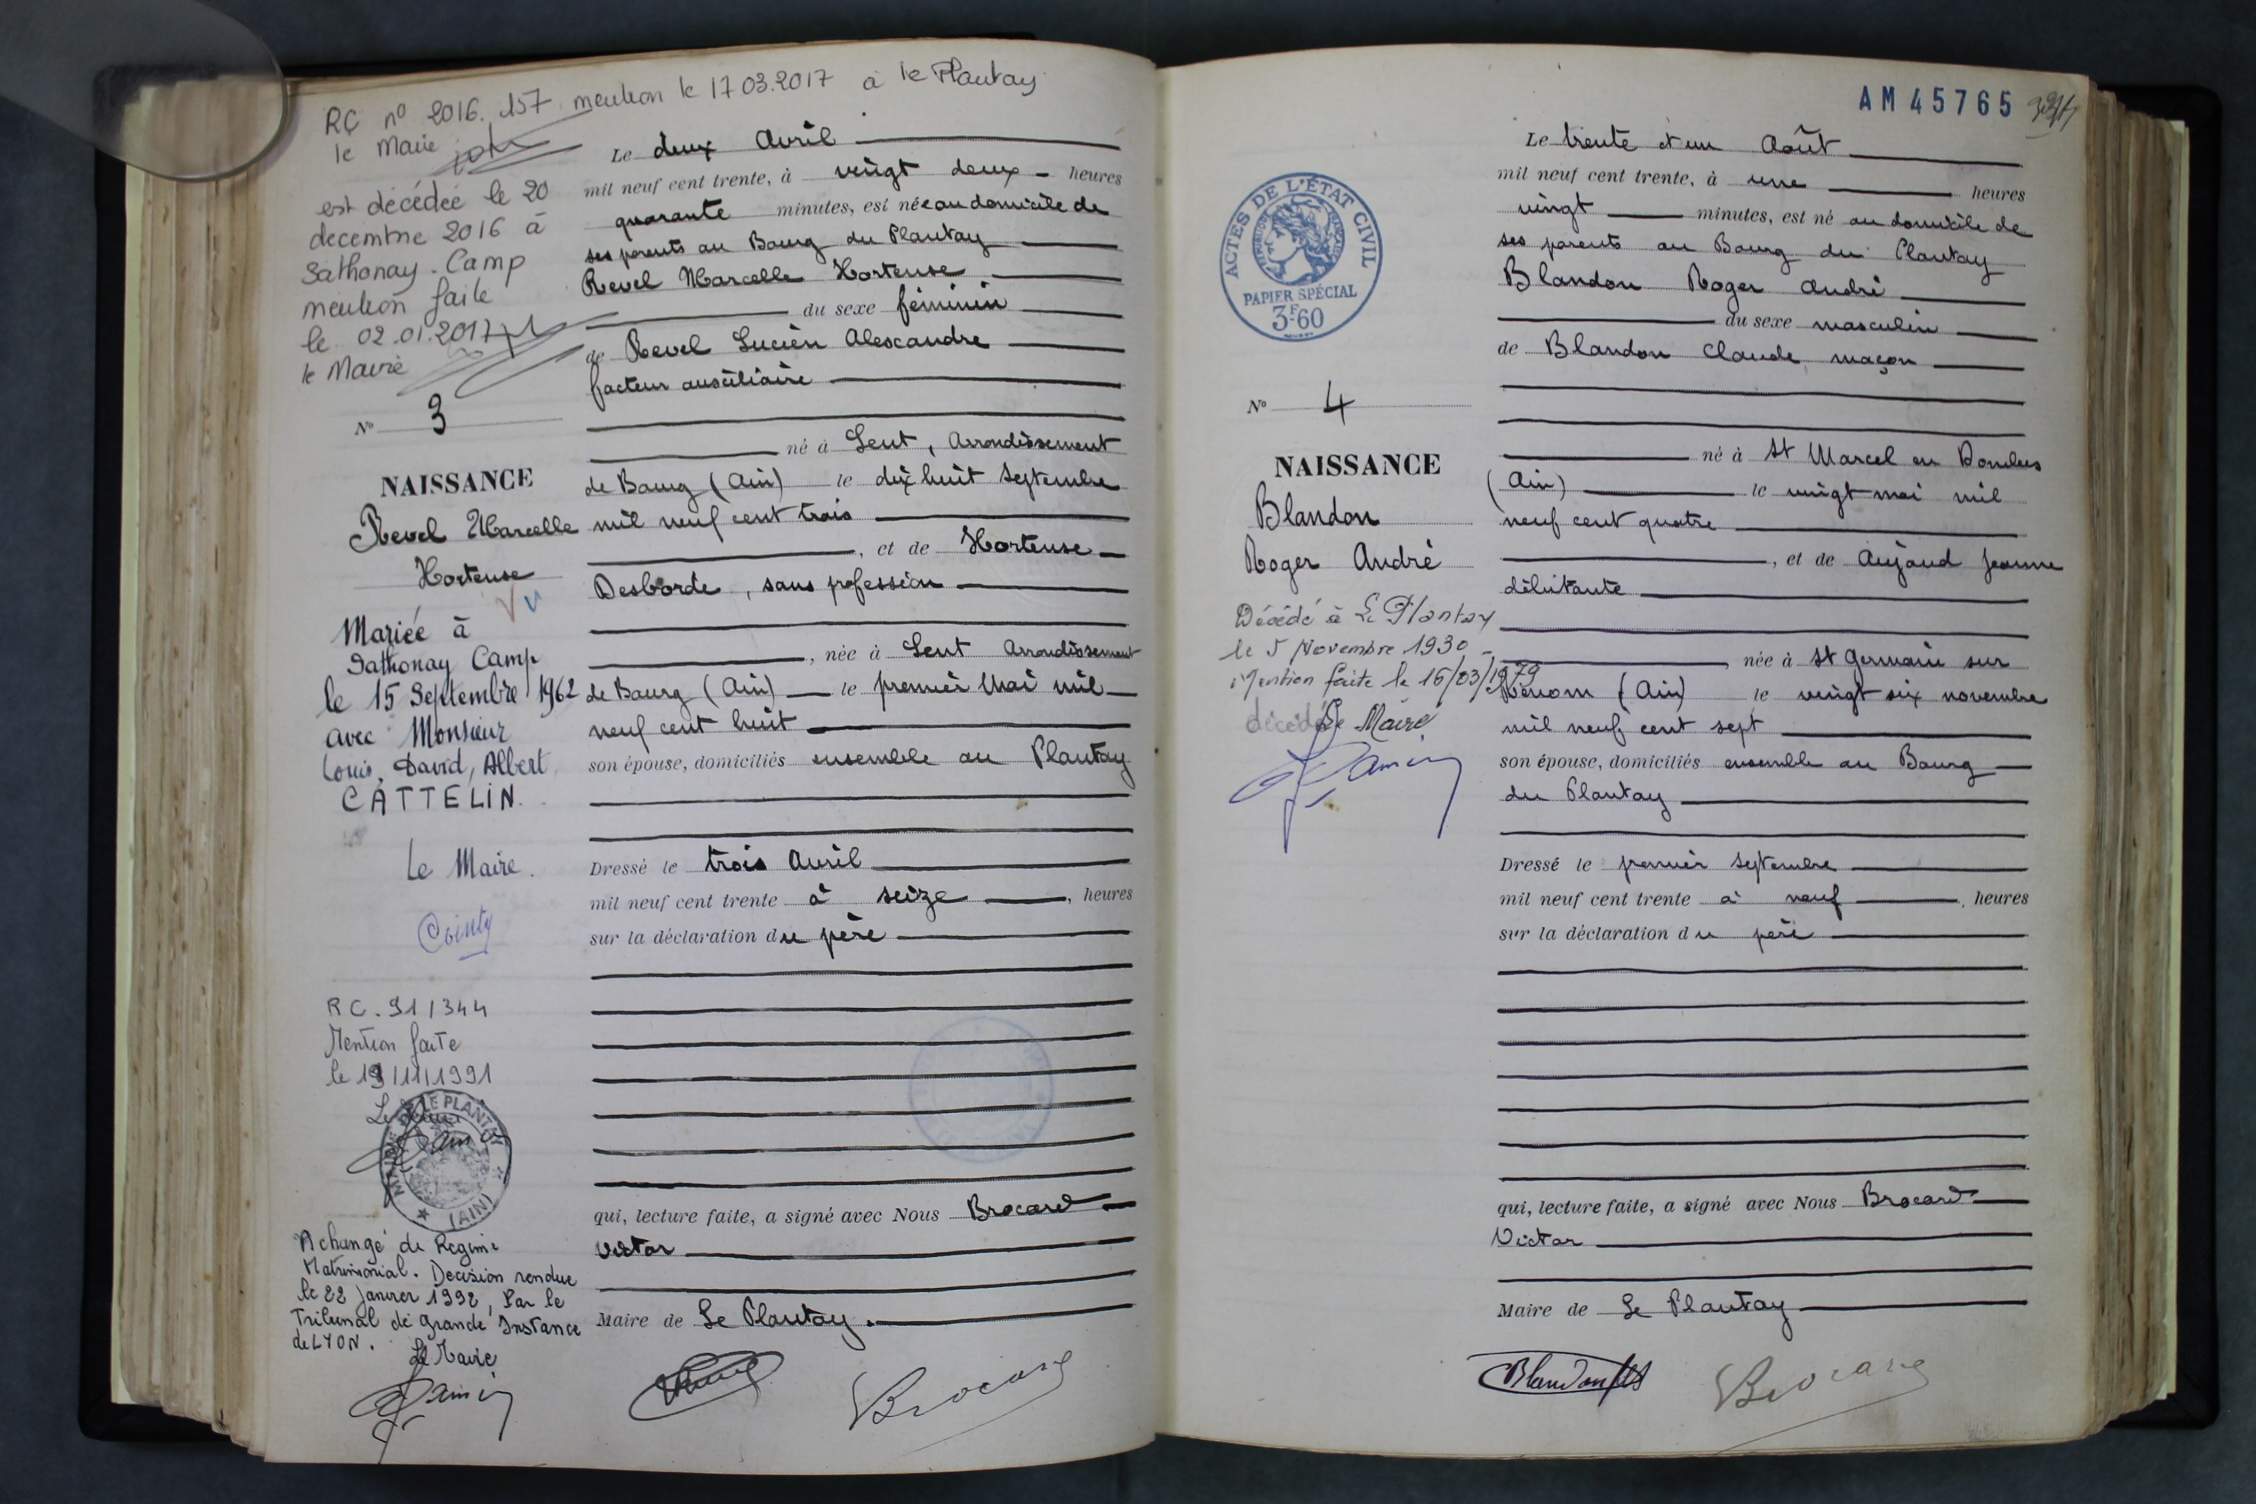 RC nº 2016.157 mention le 17 03.2017 à le Plantay
le Maire
est décédée le 20
decembre 2016 à
Sathonay-Camp
mention faite
le 02.01.2017
le Maire
Nº 3
NAISSANCE
Revel Marcelle
Hortense
Mariée à
Sathonay Camp
le 15 Septembre 1962
avec Monsieur
Louis, David, Albert
CATTELIN.
Le Maire.
Cointy
RC. 91/344
Mention faite
le 19/11/1991
Le Maire
MAIRIE DE LE PLANTAY
(AIN)
A changé de Regime
Matrimonial. Decision rendue
le 22 janvier 1992, Par le
Tribunal de grande Instance
de LYON.
Le Maire
Le deux Avril
mil neuf cent trente, à vingt deux heures
quarante minutes, est née au domicile de
ses parents au Bourg du Plantay
Revel Marcelle Hortense
du sexe féminin
de Revel Lucien Alexandre
facteur auxiliaire
né à Lent, Arrondissement
de Bourg (Ain) le dix huit Septembre
mil neuf cent trois
, et de Hortense
Desborde, sans profession
, née à Lent Arrondissement
de Bourg (Ain) le premier Mai mil
neuf cent huit
son épouse, domiciliés ensemble au Plantay
Dressé le trois Avril
mil neuf cent trente à seize, heures
sur la déclaration du père
qui, lecture faite, a signé avec Nous Brocard
Victor
Maire de Le Plantay.
Brocard
AM 45765
ACTES DE L'ÉTAT CIVIL
RÉPUBLIQUE FRANÇAISE
PAPIER SPÉCIAL
3F60
Nº 4
NAISSANCE
Blandon
Roger André
Décédé à Le Plantay
le 5 Novembre 1930
Mention faite le 16/03/1979
décédé Le Maire
Le trente et un Août
mil neuf cent trente, à une heures
vingt minutes, est né au domicile de
ses parents au Bourg du Plantay
Blandon Roger André
du sexe masculin
de Blandon Claude, maçon
né à St Marcel en Dombes
(Ain) le vingt mai mil
neuf cent quatre
, et de Aujaud Jeanne
débitante
née à St Germain sur
Renom (Ain) le vingt six novembre
mil neuf cent sept
son épouse, domiciliés ensemble au Bourg
du Plantay
Dressé le premier Septembre
mil neuf cent trente à neuf, heures
sur la déclaration du père
qui, lecture faite, a signé avec Nous Brocard
Victor
Maire de Le Plantay
Blandon
Brocard